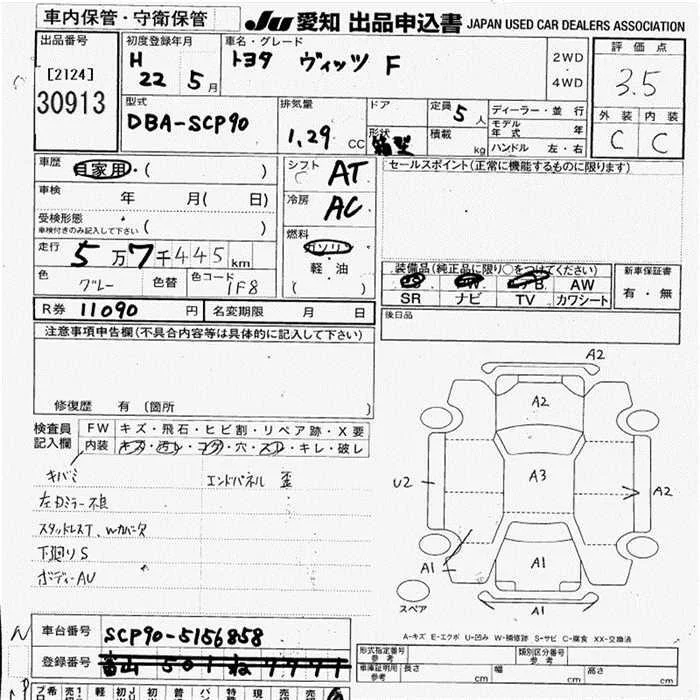 車内保管・守衛保管
JU 愛知 出品申込書 JAPAN USED CAR DEALERS ASSOCIATION
出品番号
[2124]
30913
初度登録年月
H 22 5月
車名・グレード
トヨタ ヴィッツ F
2WD
・
4WD
評価点
3.5
外装 内装
C C
型式
DBA-SCP90
排気量
1,29 CC
ドア
形状
箱型
定員 5 人
積載 kg
ディーラー・並行
モデル年式 年
ハンドル 左・右
車歴 自家用・( )
車検 年 月( 日)
受検形態
車検付きのみ記入して下さい ( )
走行 5万7千445km
色 グレー 色替 色コード 1F8
シフト AT
冷房 AC
燃料
ガソリン
軽・油
( )
セールスポイント(正常に機能するものに限ります)
装備品(純正品に限り○をつけてください)
AW
SR ナビ TV カワシート
新車保証書
有・無
後日品
R券 11090 円 名変期限 月 日
注意事項申告欄(不具合内容等は具体的に記入して下さい)
修復歴 有 (箇所 )
検査員記入欄
FW キズ・飛石・ヒビ割・リペア跡・X要
内装 キズ・汚れ・コゲ・穴・スレ・キレ・破レ
キバミ エンドパネル 歪
左ドミラー不良
スタッドレスT、Wカバー欠
下廻りS
ボディーAU
A2
A2
A3
U2
A2
A1
A1
A1
スペア
A-キズ E-エクボ U-凹み W-補修跡 S-サビ C-腐食 XX-交換済
車台番号 SCP90-5156858
登録番号 富山 501 ね 7777
形式指定番号
参考
類別区分番号
参考
車庫証明用
参考
長さ cm 幅 cm 高さ cm